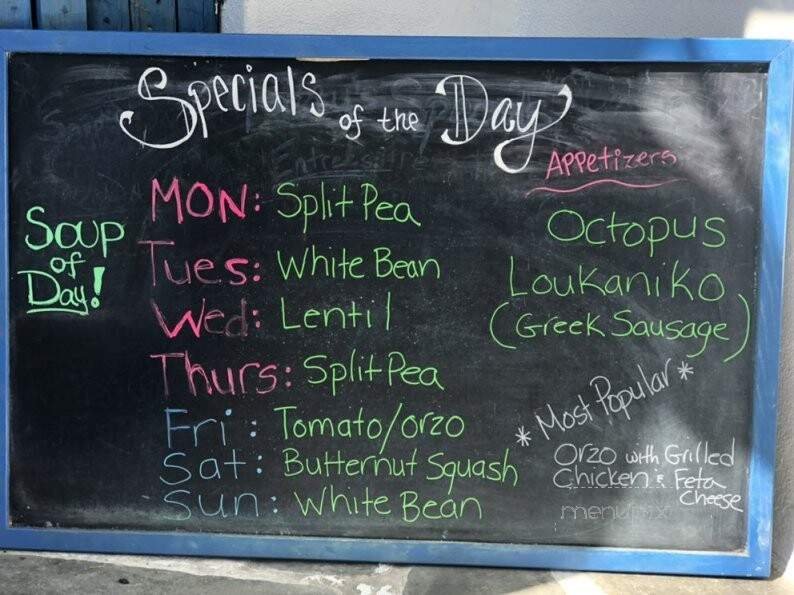 Specials of the Day
Soup
of
Day!
MON: Split Pea
Tues: White Bean
Wed: Lentil
Thurs: Split Pea
Fri: Tomato/orzo
Sat: Butternut Squash
Sun: White Bean
Appetizers
Octopus
Loukaniko
(Greek Sausage)
* Most Popular *
Orzo with Grilled
Chicken & Feta
Cheese
menupix